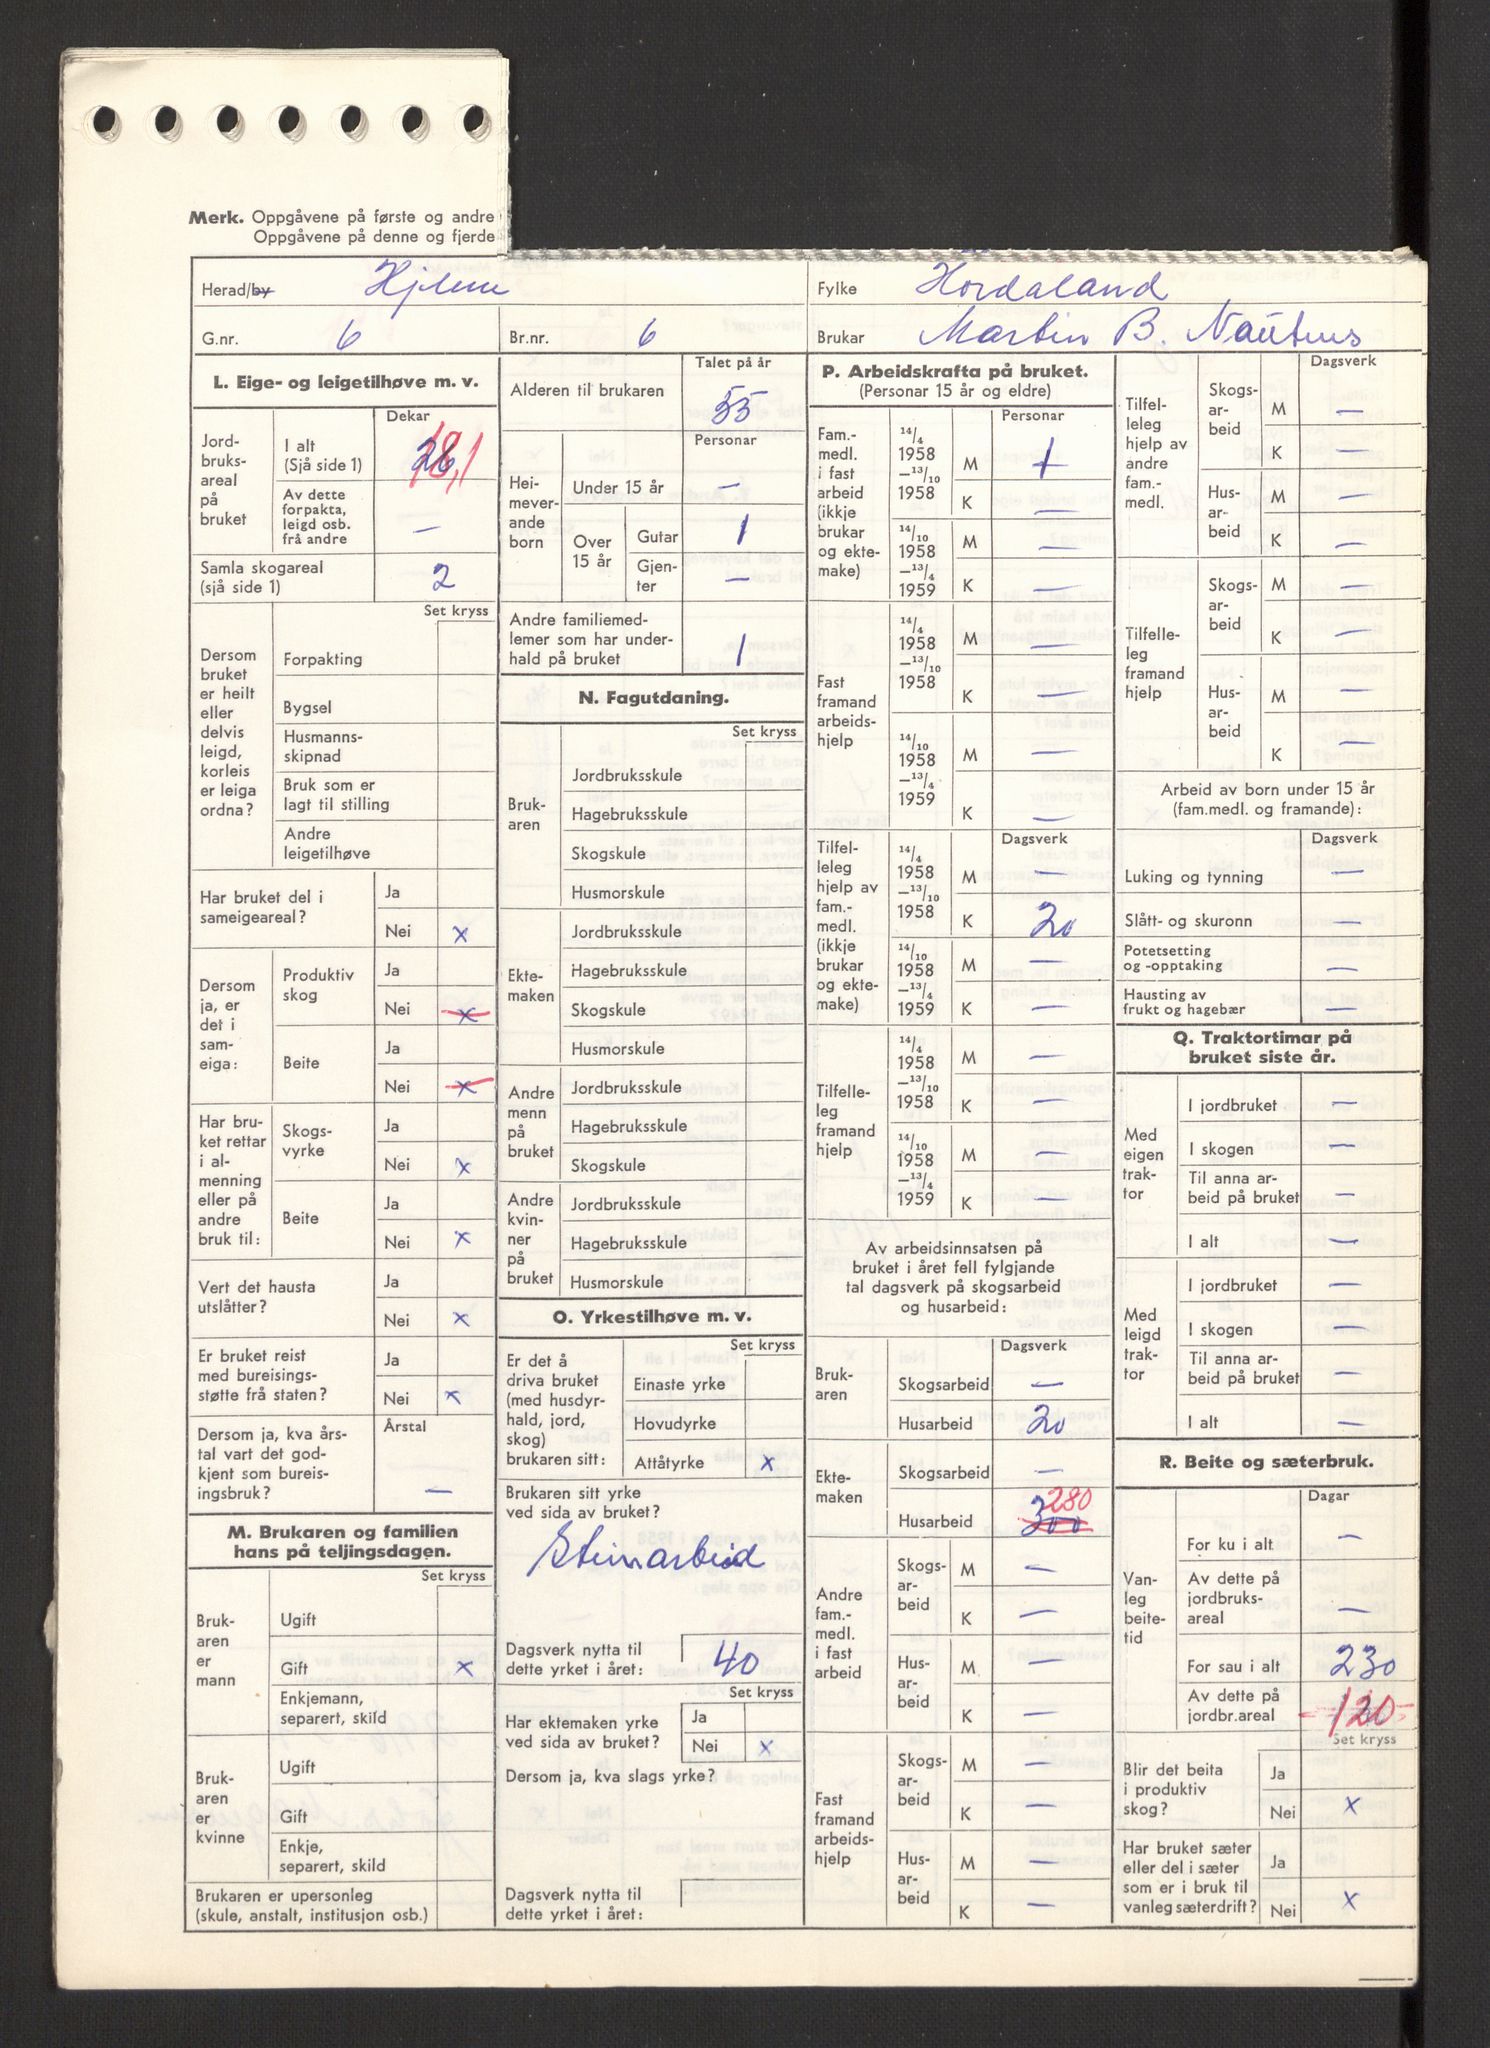 Merk. Oppgåvene på første og andre
Oppgåvene på denne og fjerde
Herad/by Hjelme
Fylke Hordaland
G.nr. 6
Br.nr. 6
Brukar Martin B. Nautnes
L. Eige- og leigetilhøve m. v.
Dekar
Jord-
bruks-
areal
på
bruket
I alt
(Sjå side 1)
26
18,1
Av dette
forpakta,
leigd osb.
frå andre
—
Samla skogareal
(sjå side 1)
2
Set kryss
Dersom
bruket
er heilt
eller
delvis
leigd,
korleis
er leiga
ordna?
Forpakting
Bygsel
Husmanns-
skipnad
Bruk som er
lagt til stilling
Andre
leigetilhøve
Har bruket del i
sameigeareal?
Ja
Nei x
Dersom
ja, er
det i
sam-
eiga:
Produktiv
skog
Ja
Nei x
Beite
Ja
Nei x
Har bru-
ket rettar
i al-
menning
eller på
andre
bruk til:
Skogs-
vyrke
Ja
Nei x
Beite
Ja
Nei x
Vert det hausta
utslåtter?
Ja
Nei x
Er bruket reist
med bureisings-
støtte frå staten?
Ja
Nei x
Dersom ja, kva års-
tal vart det god-
kjent som bureis-
ingsbruk?
Årstal
—
M. Brukaren og familien
hans på teljingsdagen.
Set kryss
Bruk-
aren
er
mann
Ugift
Gift x
Enkjemann,
separert, skild
Bruk-
aren
er
kvinne
Ugift
Gift
Enkje,
separert, skild
Brukaren er upersonleg
(skule, anstalt, institusjon osb.)
Talet på år
Alderen til brukaren
55
Personar
Hei-
mever-
ande
born
Under 15 år —
Over
15 år
Gutar 1
Gjen-
ter —
Andre familiemed-
lemer som har under-
hald på bruket
1
N. Fagutdaning.
Set kryss
Bruk-
aren
Jordbruksskule
Hagebruksskule
Skogskule
Husmorskule
Ekte-
maken
Jordbruksskule
Hagebruksskule
Skogskule
Husmorskule
Andre
menn
på
bruket
Jordbruksskule
Hagebruksskule
Skogskule
Andre
kvin-
ner
på
bruket
Jordbruksskule
Hagebruksskule
Husmorskule
O. Yrkestilhøve m. v.
Set kryss
Er det å
driva bruket
(med husdyr-
hald, jord,
skog)
brukaren sitt:
Einaste yrke
Hovudyrke
Attåtyrke x
Brukaren sitt yrke
ved sida av bruket?
Steinarbeid
Dagsverk nytta til
dette yrket i året:
40
Set kryss
Har ektemaken yrke
ved sida av bruket?
Ja
Nei x
Dersom ja, kva slags yrke?
Dagsverk nytta til
dette yrket i året:
P. Arbeidskrafta på bruket.
(Personar 15 år og eldre)
Personar
Fam.-
medl.
i fast
arbeid
(ikkje
brukar
og ekte-
make)
14/4
1958
—13/10
1958
M 1
K —
14/10
1958
—13/4
1959
M —
K —
Fast
framand
arbeids-
hjelp
14/4
1958
—13/10
1958
M —
K —
14/10
1958
—13/4
1959
M —
K —
Dagsverk
Tilfel-
leleg
hjelp av
fam.-
medl.
(ikkje
brukar
og ekte-
make)
14/4
1958
—13/10
1958
M —
K 20
14/10
1958
—13/4
1959
M —
K —
Tilfelle-
leg
framand
hjelp
14/4
1958
—13/10
1958
M —
K —
14/10
1958
—13/4
1959
M —
K —
Av arbeidsinnsatsen på
bruket i året fell fylgjande
tal dagsverk på skogsarbeid
og husarbeid:
Dagsverk
Bruk-
aren
Skogsarbeid —
Husarbeid 20
Ekte-
maken
Skogsarbeid —
280
Husarbeid 300
Andre
fam.-
medl.
i fast
arbeid
Skogs-
ar-
beid
M —
K —
Hus-
ar-
beid
M —
K —
Fast
framand
arbeids-
hjelp
Skogs-
ar-
beid
M —
K —
Hus-
ar-
beid
M —
K —
Dagsverk
Tilfel-
leleg
hjelp av
andre
fam.-
medl.
Skogs-
ar-
beid
M —
K —
Hus-
ar-
beid
M —
K —
Tilfelle-
leg
framand
hjelp
Skogs-
ar-
beid
M —
K —
Hus-
ar-
beid
M —
K —
Arbeid av born under 15 år
(fam.medl. og framande):
Dagsverk
Luking og tynning —
Slått- og skuronn —
Potetsetting
og -opptaking —
Hausting av
frukt og hagebær —
Q. Traktortimar på
bruket siste år.
Med
eigen
trak-
tor
I jordbruket —
I skogen —
Til anna ar-
beid på bruket —
I alt —
Med
leigd
trak-
tor
I jordbruket —
I skogen —
Til anna ar-
beid på bruket —
I alt —
R. Beite og sæterbruk.
Dagar
Van-
leg
beite-
tid
For ku i alt —
Av dette på
jordbruks-
areal —
For sau i alt 230
Av dette på
jordbr.areal 120
Set kryss
Blir det beita
i produktiv
skog?
Ja
Nei x
Har bruket sæter
eller del i sæter
som er i bruk til
vanleg sæterdrift?
Ja
Nei x